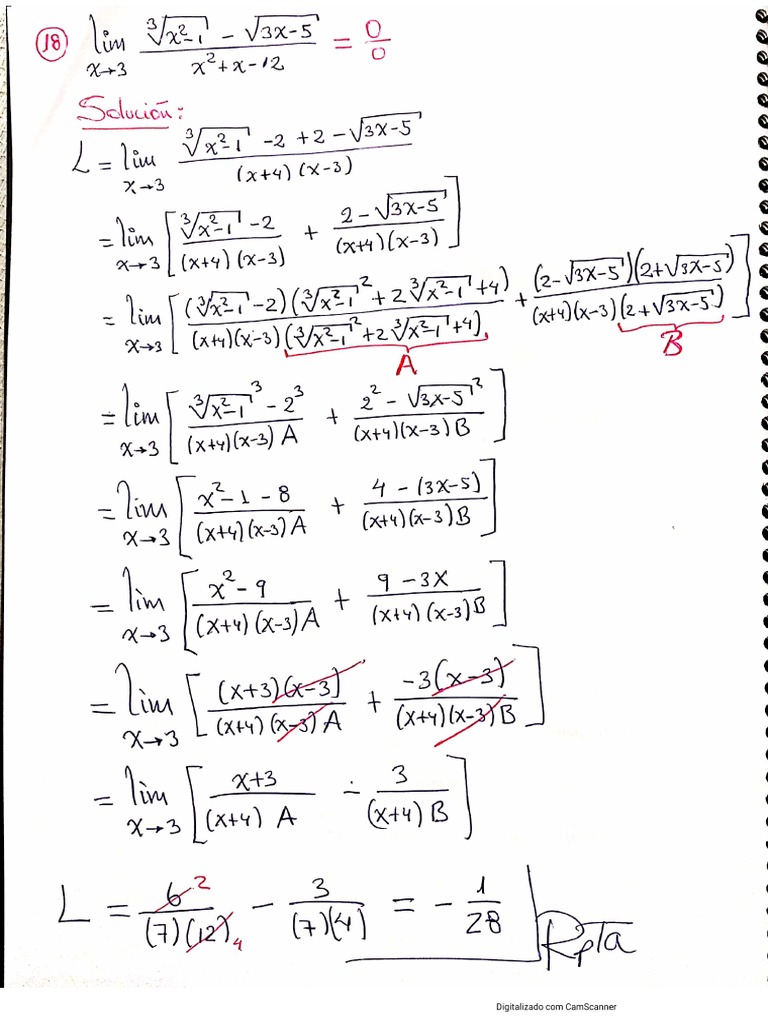 18 lim x→3 (∛(x²-1) - √(3x-5)) / (x²+x-12) = 0/0
Solución:
L = lim x→3 (∛(x²-1) -2 +2 - √(3x-5)) / ((x+4)(x-3))
= lim x→3 [ (∛(x²-1) -2) / ((x+4)(x-3)) + (2 - √(3x-5)) / ((x+4)(x-3)) ]
= lim x→3 [ (∛(x²-1) -2)(∛(x²-1)² + 2∛(x²-1) +4) / ((x+4)(x-3)(∛(x²-1)² + 2∛(x²-1) +4)) + (2-√(3x-5))(2+√(3x-5)) / ((x+4)(x-3)(2+√(3x-5))) ]
A B
= lim x→3 [ (∛(x²-1)³ - 2³) / ((x+4)(x-3) A) + (2² - √(3x-5)²) / ((x+4)(x-3) B) ]
= lim x→3 [ (x²-1-8) / ((x+4)(x-3) A) + (4 - (3x-5)) / ((x+4)(x-3) B) ]
= lim x→3 [ (x²-9) / ((x+4)(x-3) A) + (9-3x) / ((x+4)(x-3) B) ]
= lim x→3 [ (x+3)(x-3) / ((x+4)(x-3) A) + -3(x-3) / ((x+4)(x-3) B) ]
= lim x→3 [ (x+3) / ((x+4) A) - 3 / ((x+4) B) ]
L = 6 2 / ((7)(12) 4) - 3 / ((7)(4)) = - 1/28 Rpta
Digitalizado com CamScanner